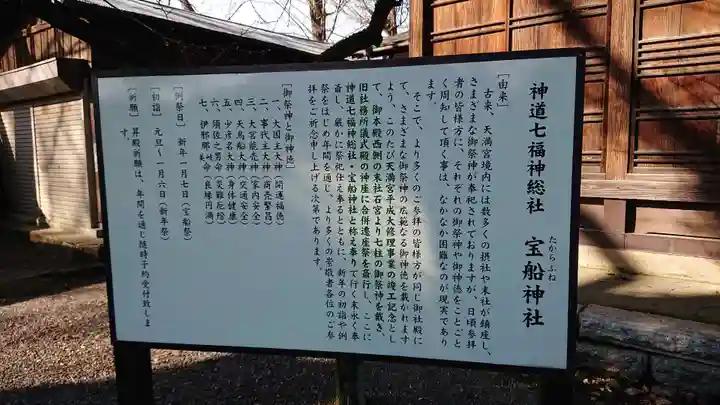 神道七福神総社　宝船神社
たからふね
［由来］
古来、天満宮境内には数多くの摂社や末社が鎮座し、
さまざまな御祭神が奉祀されておりますが、日頃参拝
者の皆様方に、それぞれの御祭神や御神徳をことごと
く周知して頂く事は、なかなか困難なのが現実であり
ます。
そこで、より多くのご参拝の皆様方が同じ御社殿に
て、さまざまな御祭神の広範なる御神徳を戴かれます
よう、このたび天満宮平成大修理事業の竣工記念とし
て、御本殿西側の末社石宮より七柱の御祭神を戴き、
旧社務所儀式殿の神座に合併遷座祭を斎行し、ここに
神道七福神総社・宝船神社と称え奉りて行く末永く奉
斎し、厳かに祭祀仕え奉るとともに、新年の初詣や例
祭をはじめ年間を通じ、より多くの崇敬者各位のご参
拝をご祈念申し上げる次第であります。
［御祭神と御神徳］
一、大国主大神（開運福徳）
二、事代主大神（商売繁昌）
三、大宮能売神（家内安全）
四、天鳥船大神（交通安全）
五、少彦名大神（身体健康）
六、須佐之男命（災難厄除）
七、伊邪那岐美命（良縁円満）
［例祭日］　新年一月七日（宝船祭）
［初詣］　元旦〜一月六日（新年祭）
［祈願］　昇殿祈願は、年間を通じ随時予約受付致しま
す。